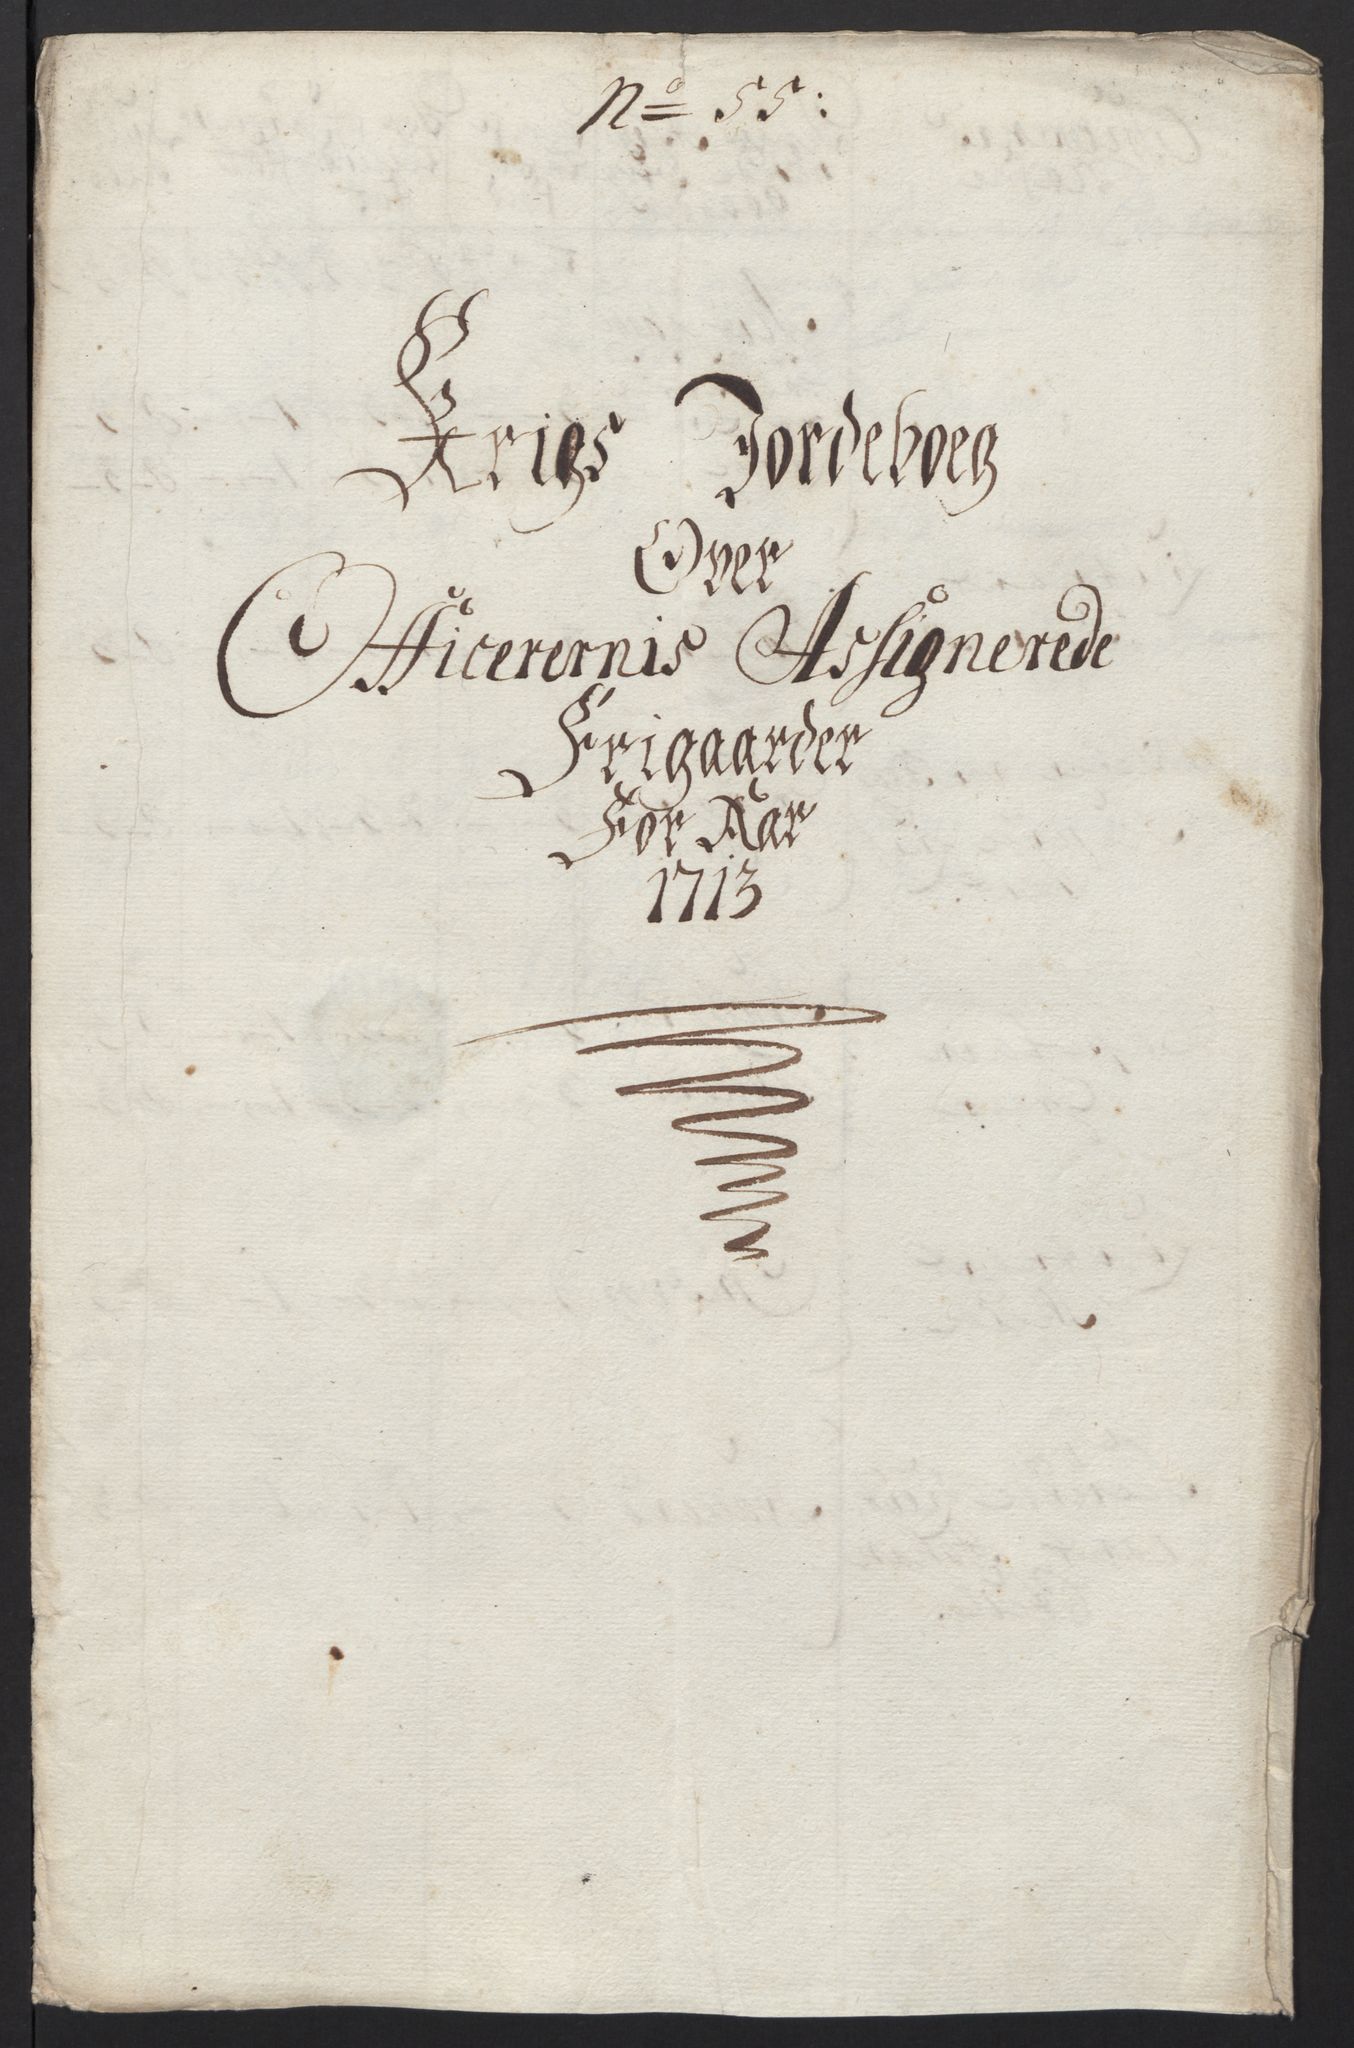 No 55:
Krigs Jordeboeg
Over
Officerernis Assignerede
Frigaarder
For Aar
1713